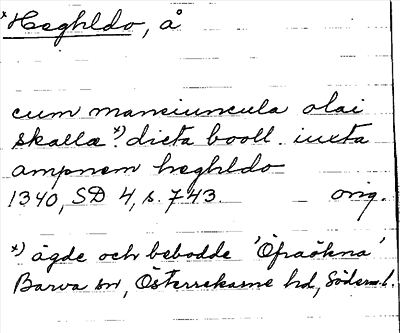 *Heghldo, å
cum mansiuncula olai
skalla *) dicta booll. iuxta
ampnem heghldo
1340, SD 4, s. 743. orig.
*) ägde och bebodde 'Öfraökna'
Barva sn, Österrekarne hd, Söderml.